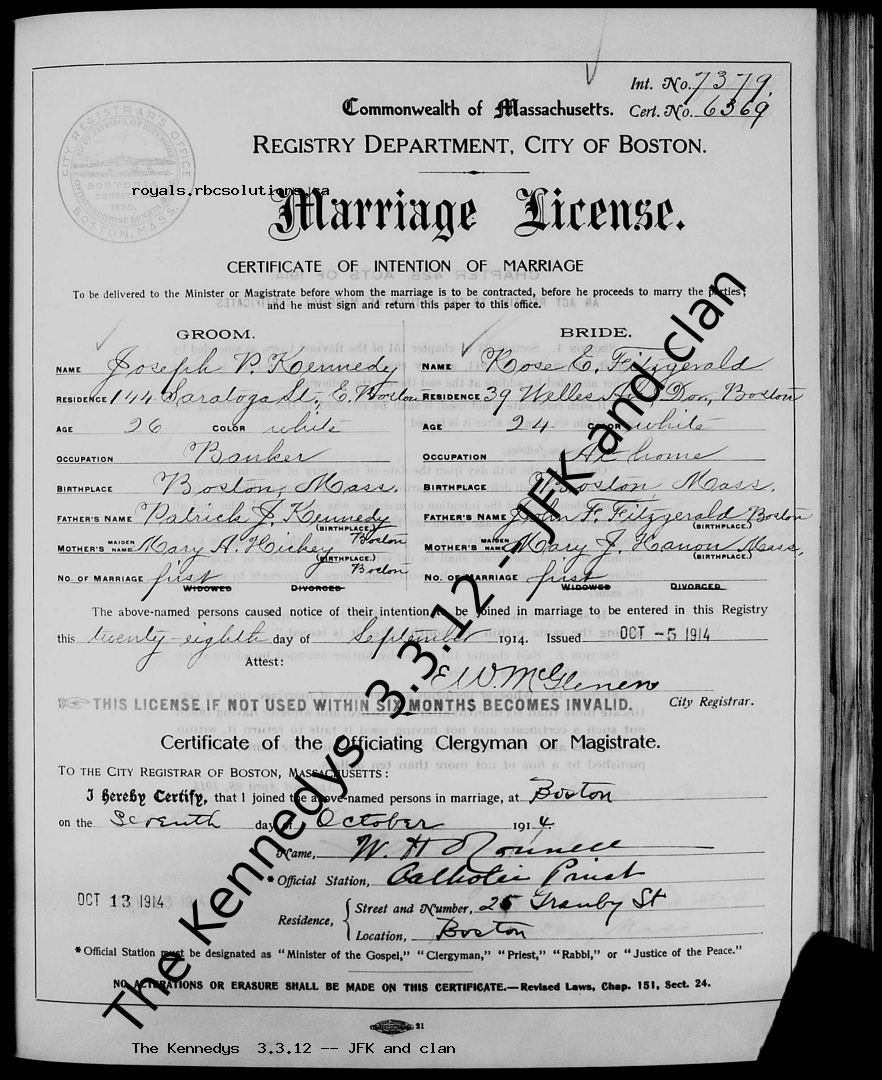 Int. No. 7379.
Commonwealth of Massachusetts. Cert. No. 6369
REGISTRY DEPARTMENT, CITY OF BOSTON.
CITY REGISTRAR'S OFFICE
BOSTON, MASS.
royals.rbcsolutions.ca
Marriage License.
CERTIFICATE OF INTENTION OF MARRIAGE
To be delivered to the Minister or Magistrate before whom the marriage is to be contracted, before he proceeds to marry the parties;
and he must sign and return this paper to this office.
GROOM. BRIDE.
NAME Joseph P. Kennedy NAME Rose E. Fitzgerald
RESIDENCE 144 Saratoga St., E. Boston RESIDENCE 39 Welles Av. Dor, Boston
AGE 26 COLOR white AGE 24 COLOR white
OCCUPATION Banker OCCUPATION At home
BIRTHPLACE Boston, Mass. BIRTHPLACE Boston, Mass.
FATHER'S NAME Patrick J. Kennedy FATHER'S NAME John F. Fitzgerald Boston
(BIRTHPLACE.) Boston (BIRTHPLACE.)
MOTHER'S MAIDEN NAME Mary A. Hickey MOTHER'S MAIDEN NAME Mary J. Hanon Mass.
(BIRTHPLACE.) Boston (BIRTHPLACE.)
NO. OF MARRIAGE first NO. OF MARRIAGE first
WIDOWED DIVORCED WIDOWED DIVORCED
The above-named persons caused notice of their intention to be joined in marriage to be entered in this Registry
this twenty-eighth day of September 1914. Issued OCT -5 1914
Attest:
E W McGlenen
City Registrar.
THIS LICENSE IF NOT USED WITHIN SIX MONTHS BECOMES INVALID.
Certificate of the Officiating Clergyman or Magistrate.
TO THE CITY REGISTRAR OF BOSTON, MASSACHUSETTS:
I hereby Certify, that I joined the above-named persons in marriage, at Boston
on the Seventh day of October 1914.
Name, W. H O'Connell
*Official Station, Catholic Priest
OCT 13 1914
Residence, Street and Number, 25 Granby St
Location, Boston
*Official Station must be designated as "Minister of the Gospel," "Clergyman," "Priest," "Rabbi," or "Justice of the Peace."
NO ALTERATIONS OR ERASURE SHALL BE MADE ON THIS CERTIFICATE.—Revised Laws, Chap. 151, Sect. 24.
21
The Kennedys 3.3.12 -- JFK and clan
The Kennedys 3.3.12 -- JFK and clan